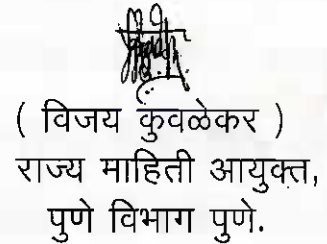 ( विजय कुवळेकर )
राज्य माहिती आयुक्त,
पुणे विभाग पुणे.